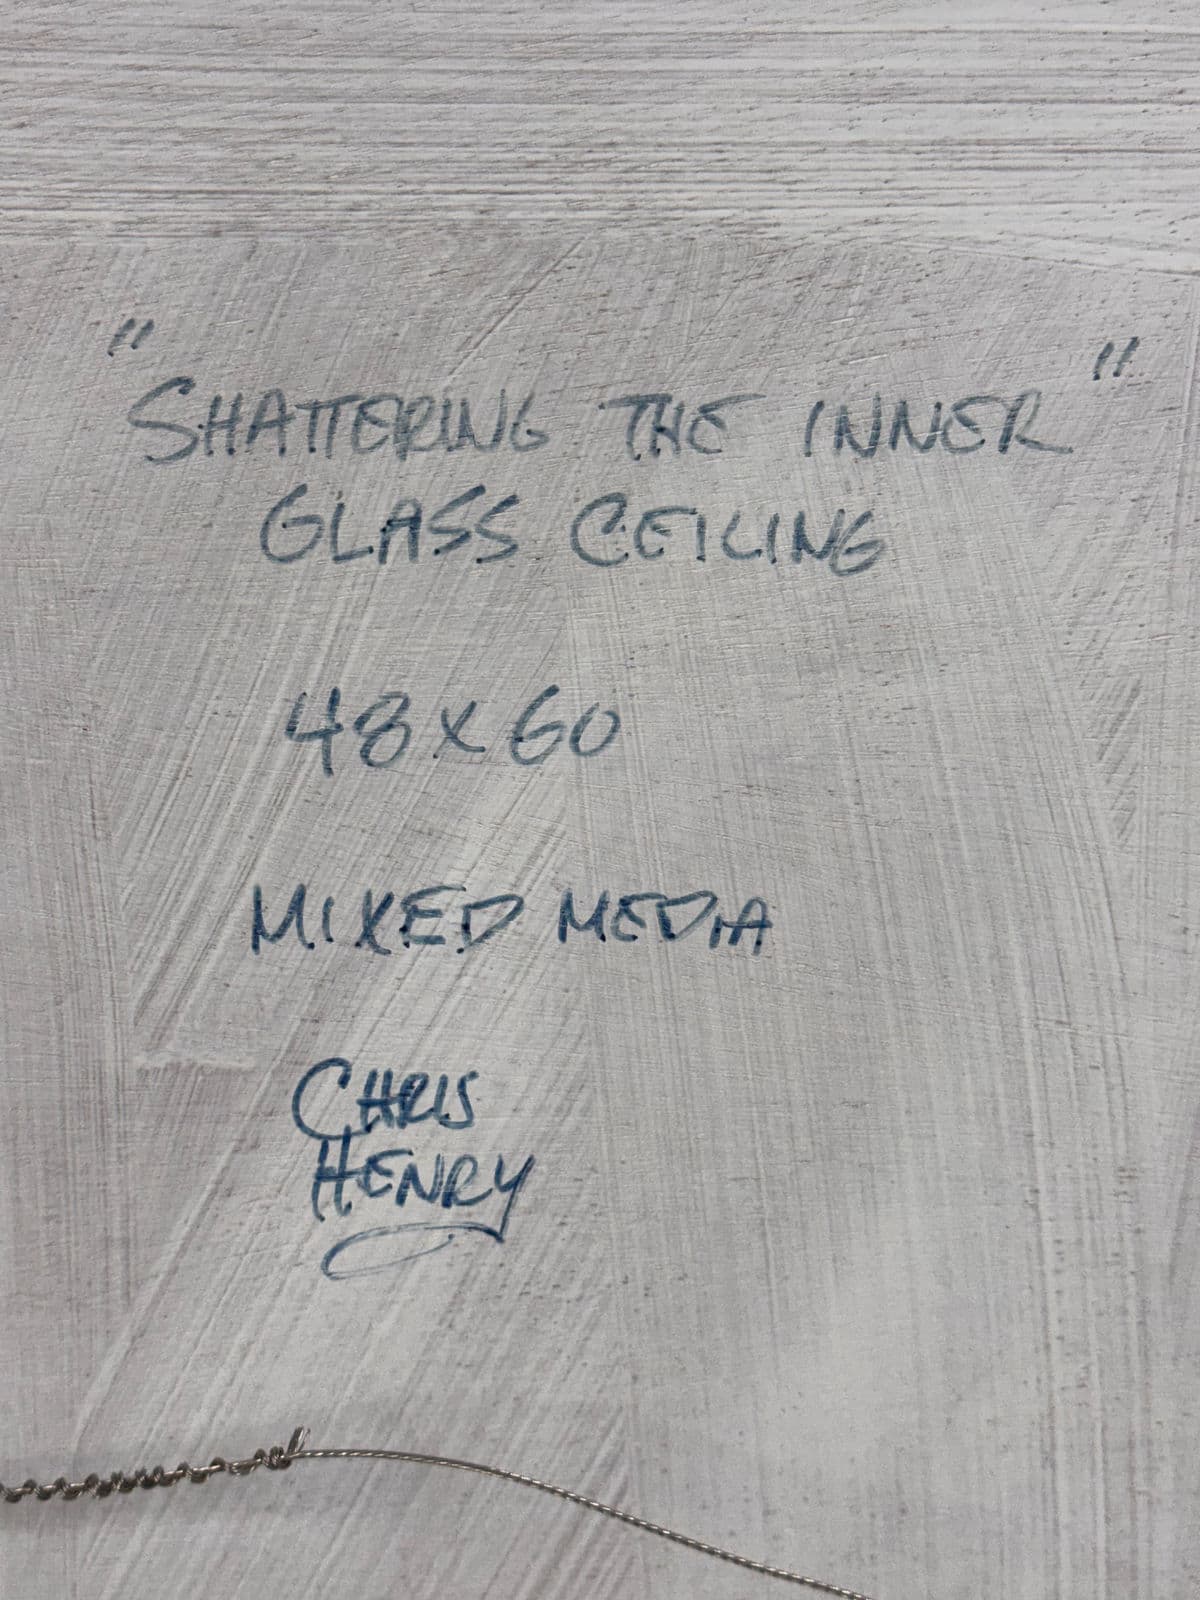 "SHATTERING THE INNER"
GLASS CEILING
48 x 60
MIXED MEDIA
CHRIS
HENRY